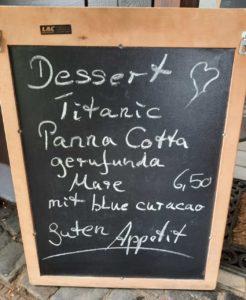 LAC
Dessert
Titanic
Panna Cotta
gerufunda
Mare 6,50
mit blue curacao
guten Appetit